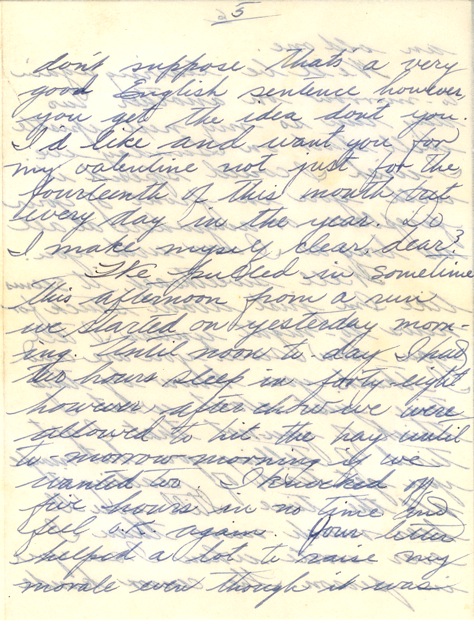 5
don't suppose that's a very
good English sentence however,
you get the idea don't you.
I'd like and want you for
my valentine not just for the
fourteenth of this month but
every day in the year. Do
I make myself clear, dear?
We pulled in sometime
this afternoon from a run
we started on yesterday morn-
ing. Until noon to-day I had
two hours sleep in forty-eight
however after chow we were
allowed to hit the hay until
to-morrow morning if we
wanted too. I knocked off
five hours in no time and
feel o.k. again. Your letter
helped a lot to raise my
morale even though it was